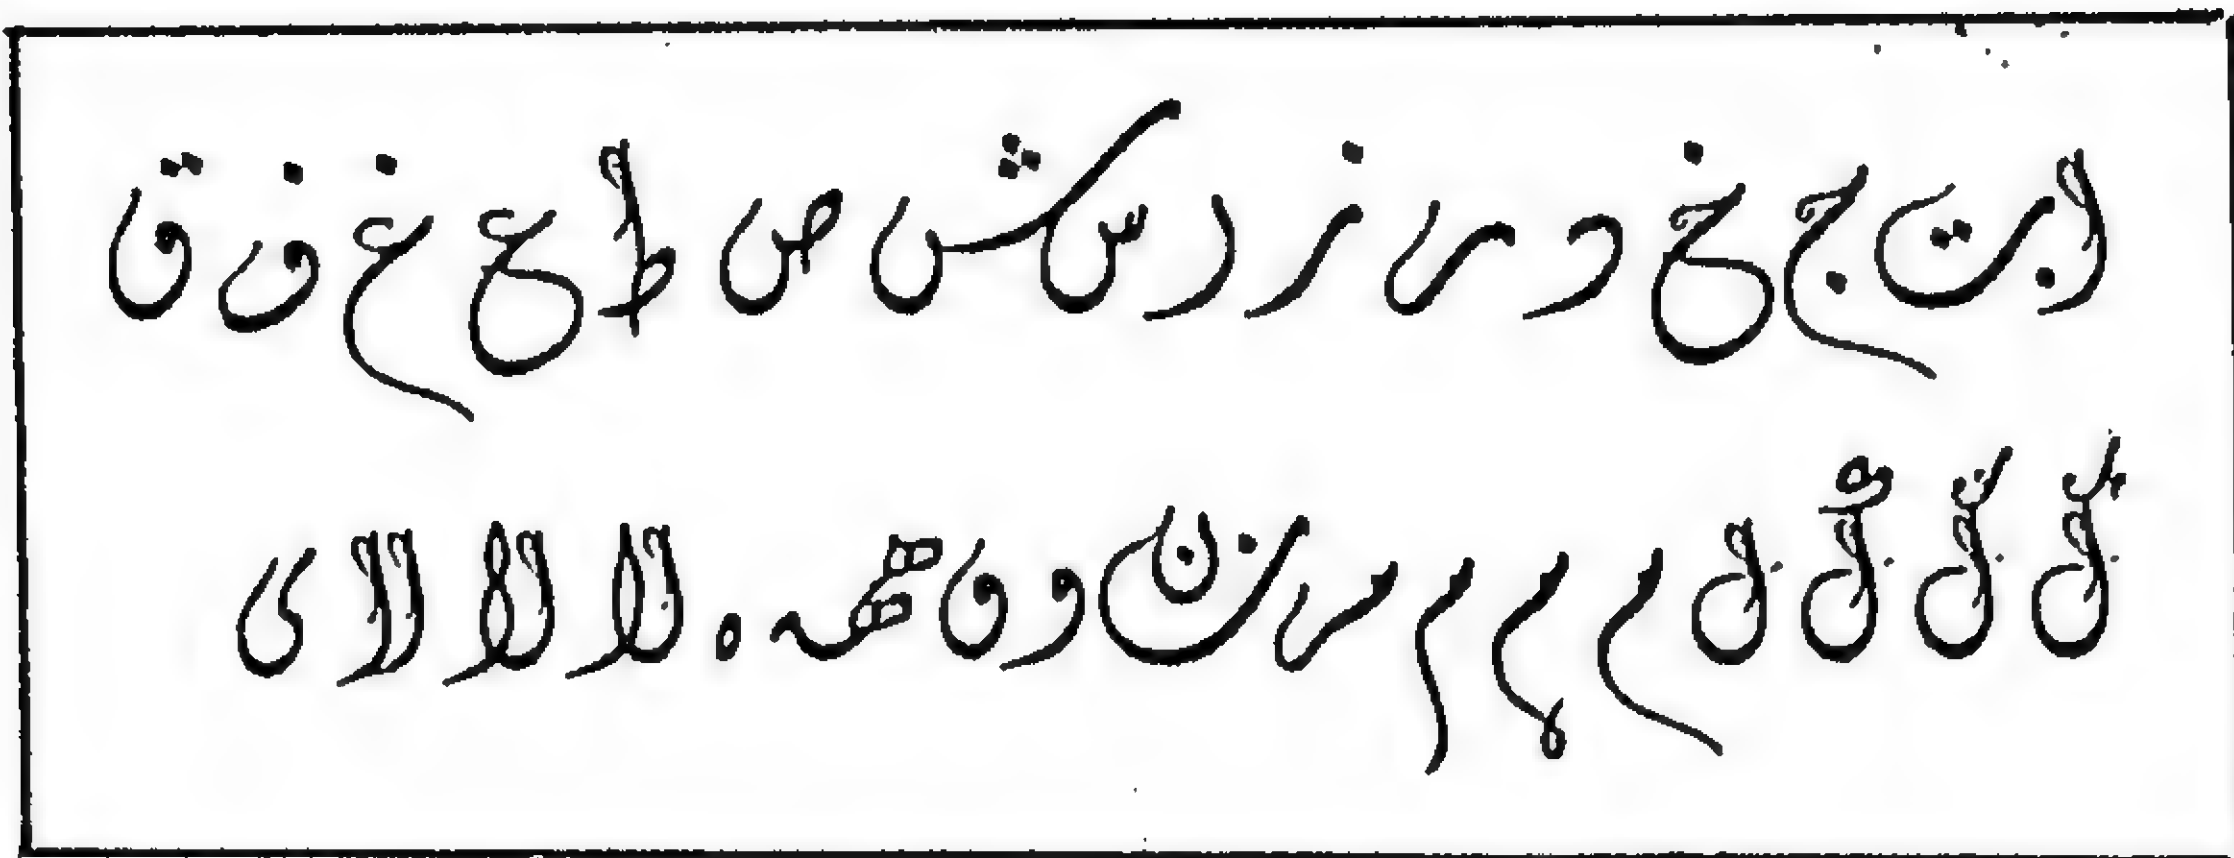 ا ب ت ج خ د ر ز ر س ش ص ط ع غ ف ق
ك ك ك ل م م م م ن ن و و ه ه لا لا لا ى